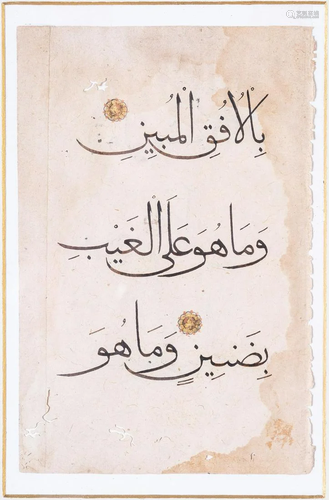 بِالْاُفُقِ الْمُبِينِ
وَمَا هُوَ عَلَى الْغَيْبِ
بِضَنِينٍ وَمَا هُوَ